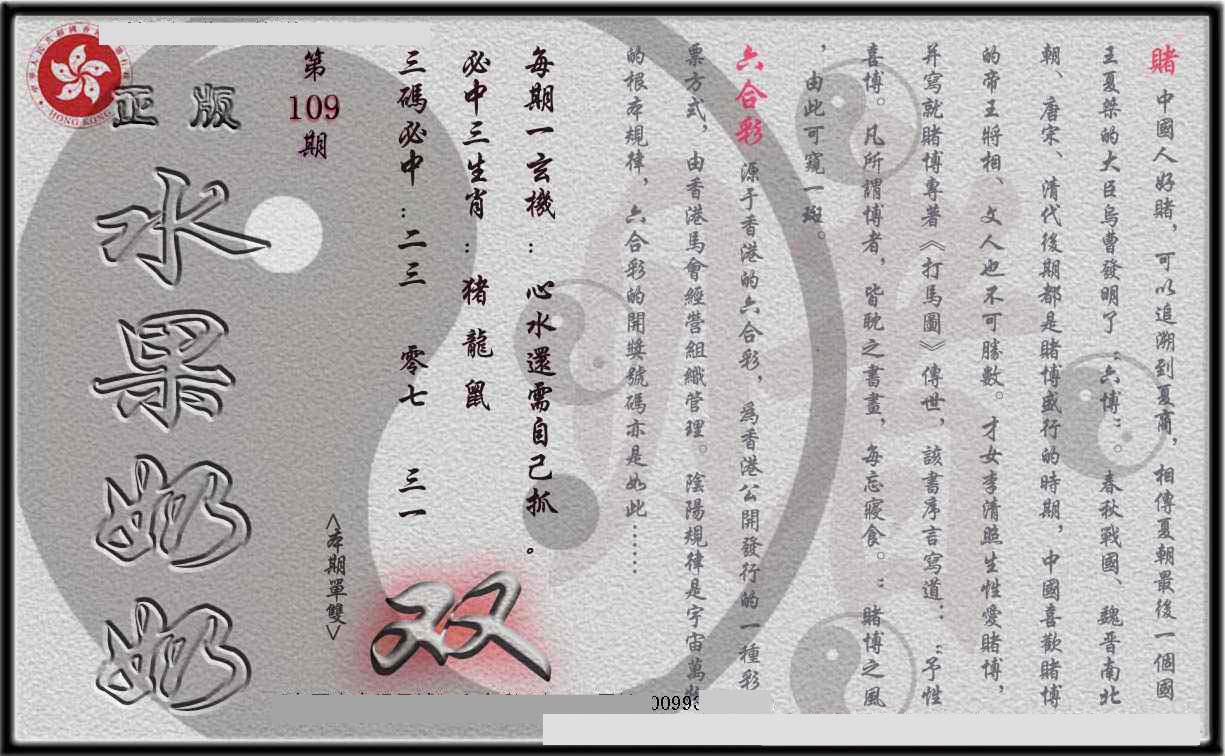 賭 中國人好賭，可以追溯到夏商，相傳夏朝最後一個國
王夏桀的大臣烏曹發明了“六博”。春秋戰國、魏晋南北
朝、唐宋、清代後期都是賭博盛行的時期，中國喜歡賭博
的帝王將相、文人也不可勝數。才女李清照生性愛賭博，
并寫就賭博專著《打馬圖》傳世，該書序言寫道：“予性
喜博。凡所謂博者，皆耽之書畫，每忘寢食。“賭博之風
，由此可窺一斑。
六合彩 源于香港的六合彩，爲香港公開發行的一種彩
票方式，由香港馬會經營組織管理。陰陽規律是宇宙萬物
的根本規律，六合彩的開獎號碼亦是如此……
每期一玄機：心水還需自己抓。
必中三生肖：猪 龍 鼠
三碼必中：二三 零七 三一
<本期單雙>
双
第
109
期
正版
水果奶奶
HONG KONG